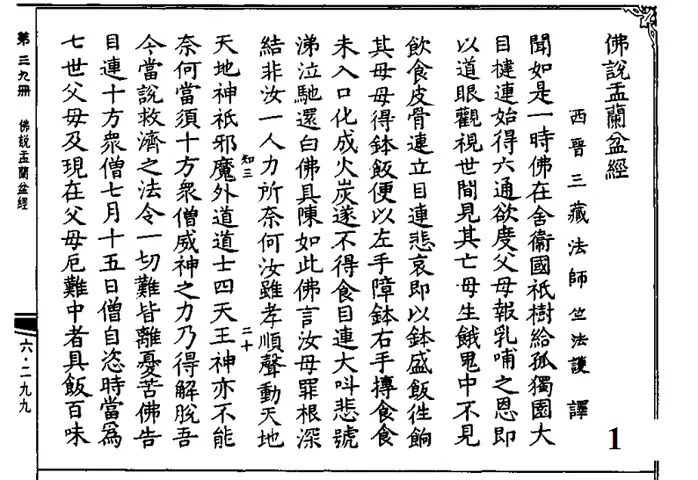 佛說盂蘭盆經
西晉三藏法師竺法護 譯
聞如是一時佛在舍衞國祇樹給孤獨園大
目揵連始得六通欲度父母報乳哺之恩即
以道眼觀視世間見其亡母生餓鬼中不見
飲食皮骨連立目連悲哀即以鉢盛飯徃餉
其母母得鉢飯便以左手障鉢右手摶食食
未入口化成火炭遂不得食目連大叫悲號
涕泣馳還白佛具陳如此佛言汝母罪根深
結非汝一人力所奈何汝雖孝順聲動天地
知三
二十
天地神祇邪魔外道道士四天王神亦不能
奈何當須十方衆僧威神之力乃得解脫吾
今當說救濟之法令一切難皆離憂苦佛告
目連十方衆僧七月十五日僧自恣時當為
七世父母及現在父母厄難中者具飯百味
第三九冊 佛說盂蘭盆經
六·二九九
1